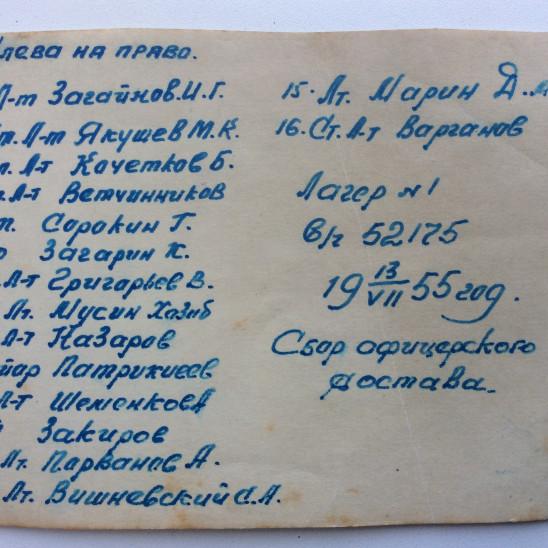 Слева на право.
Л-т Загайнов.И.Г.
Ст.Л-т Якушев М.К.
т. Л-т Кочетков Б.
т.Л-т Ветчинников
т. Сорокин Г.
Загарин К.
.Л-т Григарьев В.
Лт. Мусин Хазиб
Л-т Назаров
Патрикиеев
Л-т Шеменков А
Закиров
Лт. Парванов А.
Лт. Вишневский С.А.
15. Лт. Марин Д.
16. Ст.Л-т Варганов
Лагер №1
В/ч 52175
19 13/VII 55 год.
Сбор офицерского
состава.